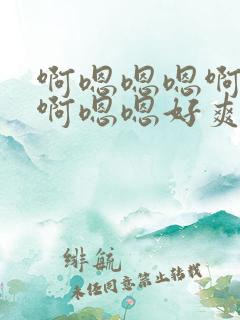 啊嗯嗯嗯啊
啊嗯嗯好爽
绯航
未经同意禁止转载